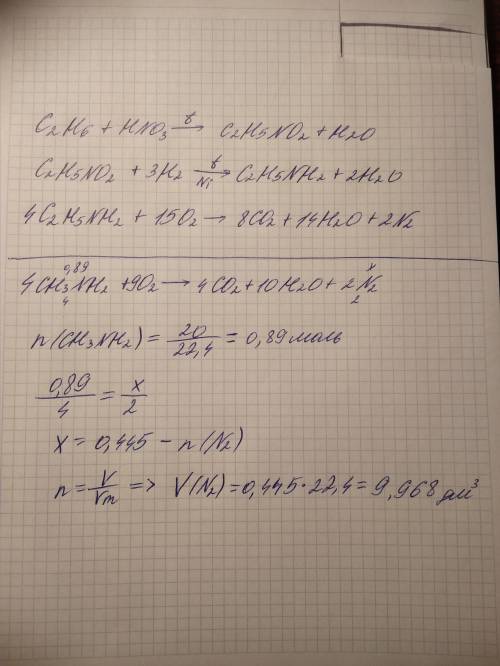 C2H6 + HNO3 t→ C2H5NO2 + H2O
C2H5NO2 + 3H2 t→Ni C2H5NH2 + 2H2O
4C2H5NH2 + 15O2 → 8CO2 + 14H2O + 2N2
0,89 x
4CH3NH2 + 9O2 → 4CO2 + 10H2O + 2N2
4 2
n(CH3NH2) = 20/22,4 = 0,89 моль
0,89/4 = x/2
x = 0,445 - n(N2)
n = V/Vm => V(N2) = 0,445·22,4 = 9,968 дм³